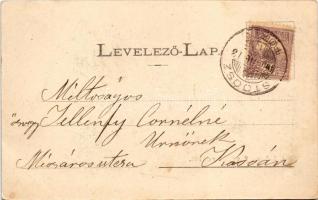 LEVELEZŐ-LAP.
STÓSZ
Méltóságos
özvegy Jellenfy Cornélné
Urnőnek
Mészáros utcza Kassán